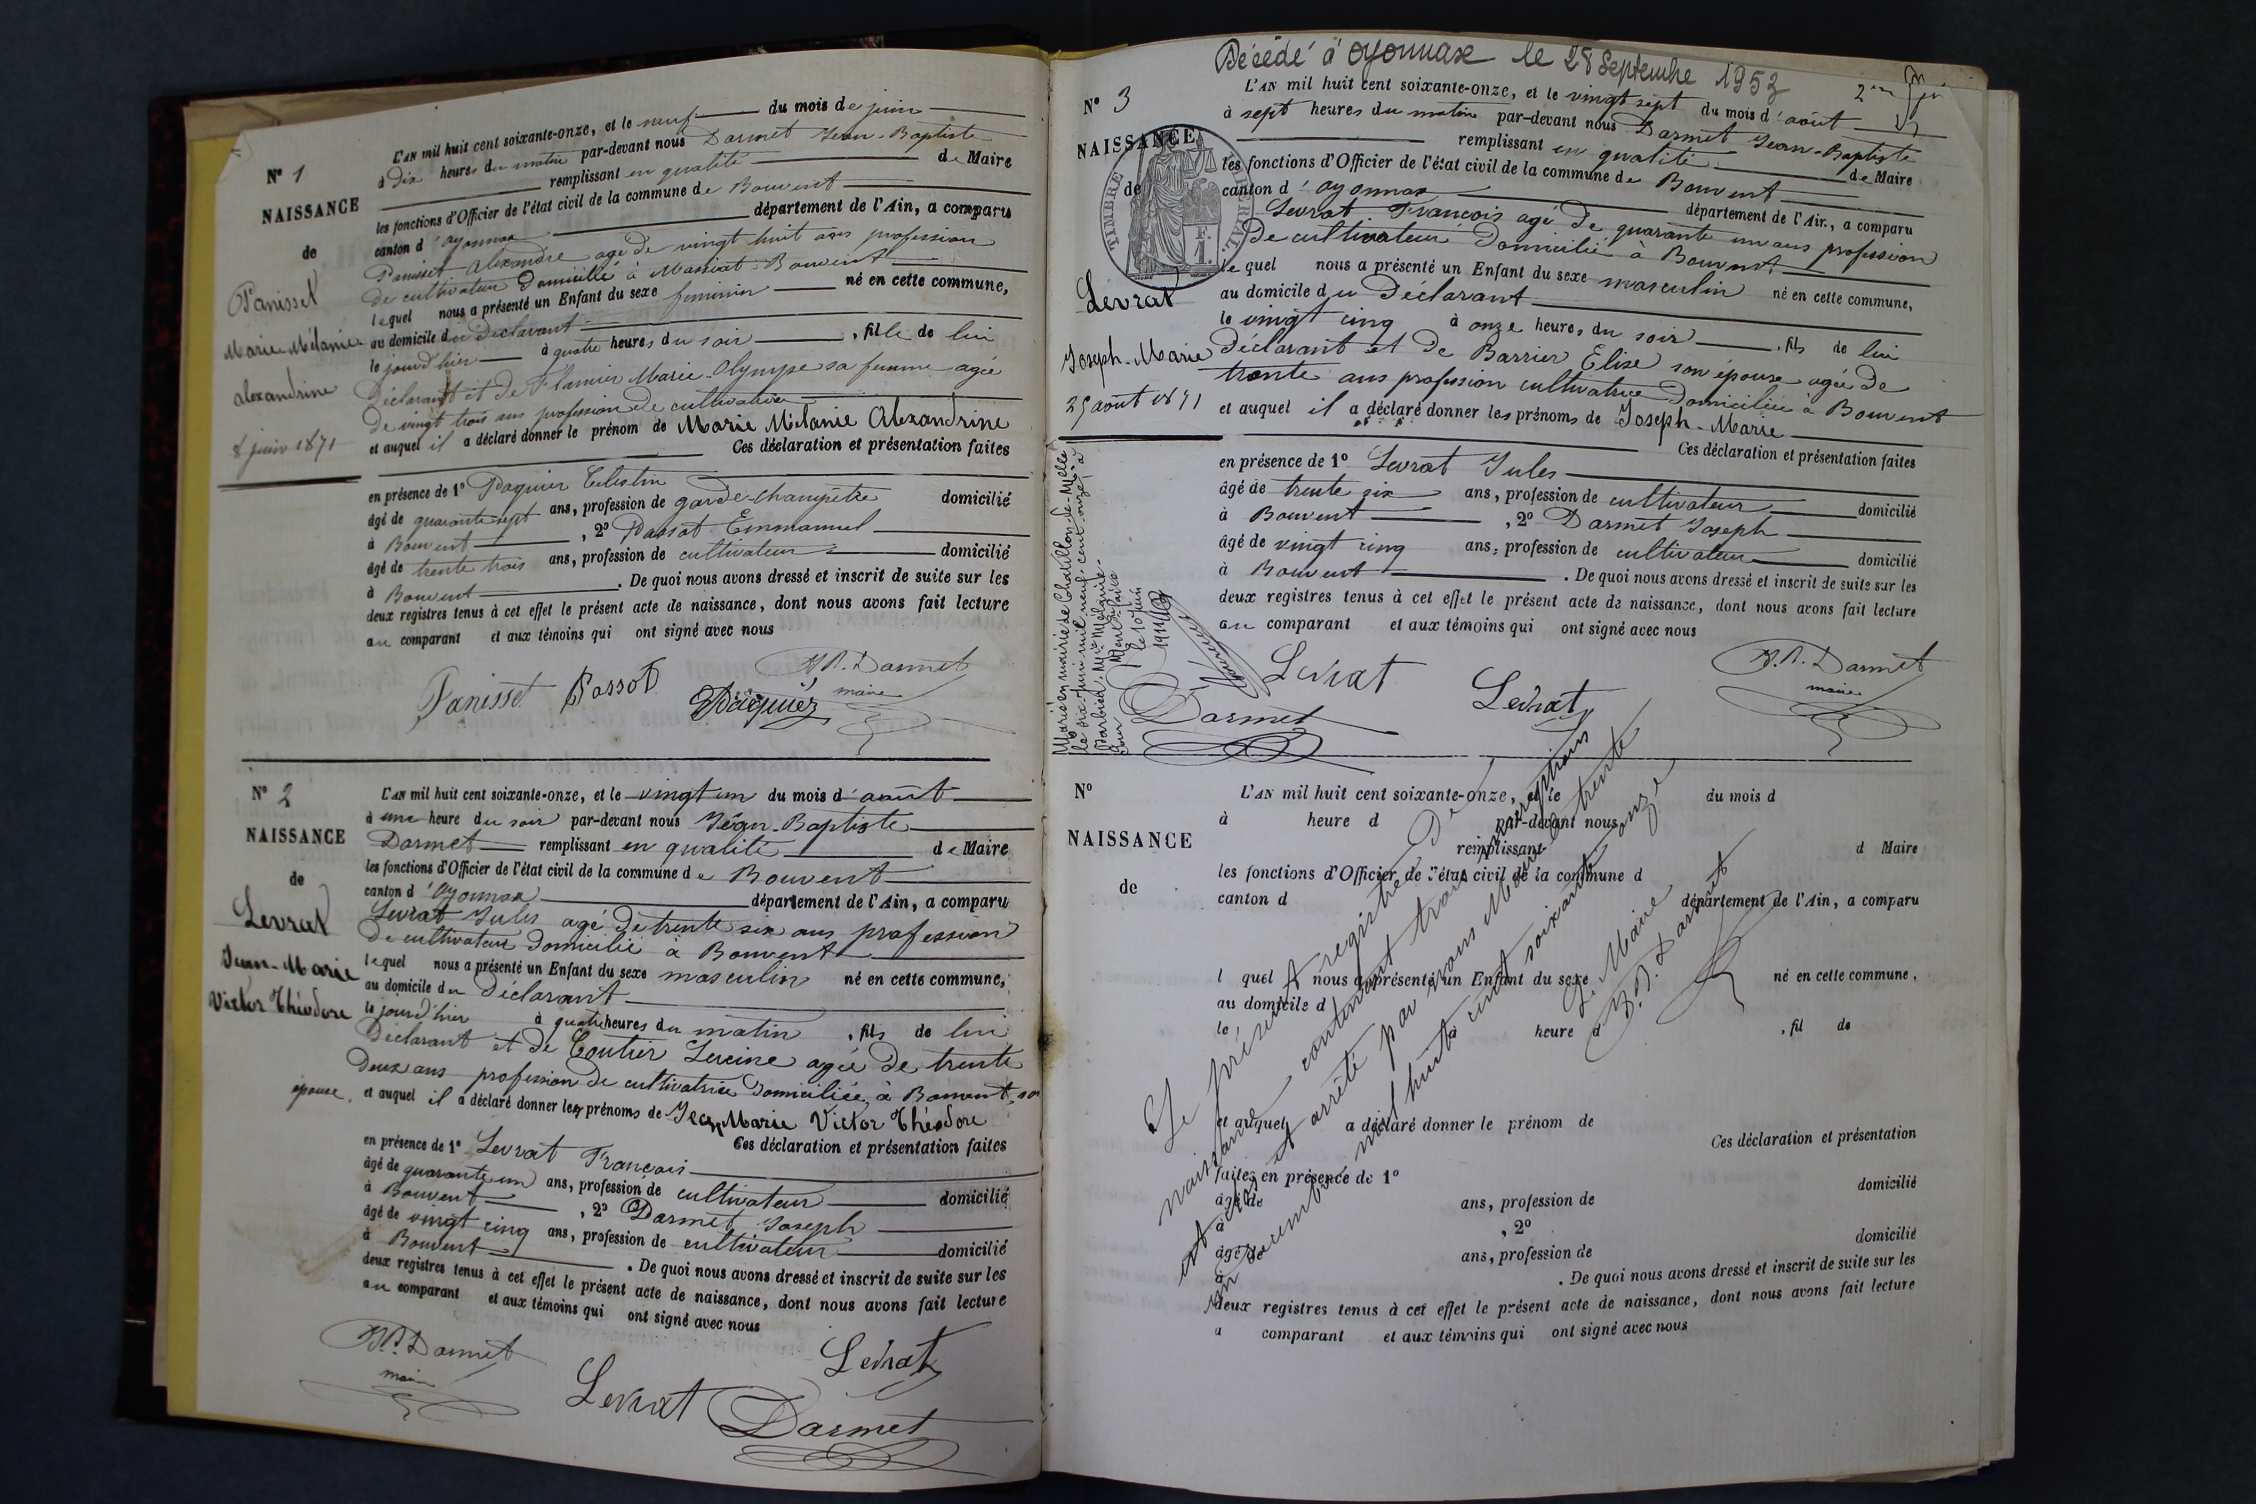 N° 1
NAISSANCE
de
Panisset
Marie Mélanie
Alexandrine
8 juin 1871
L'AN mil huit cent soixante-onze, et le neuf du mois de juin
à dix heures du matin par-devant nous Darmet Jean-Baptiste
remplissant en qualité de Maire
les fonctions d'Officier de l'état civil de la commune de Bouvent
canton d'oyonnax département de l'Ain, a comparu
Panisset Alexandre agé de vingt huit ans profession
de cultivateur domicilié à Massiat Bouvent
lequel nous a présenté un Enfant du sexe feminin né en cette commune,
au domicile du Déclarant
le jourd'hier à quatre heures du soir , fille de lui
Déclarant et de Flamier Marie Olympe sa femme agée
de vingt trois ans profession de cultivatrice
et auquel il a déclaré donner le prénom de Marie Mélanie Alexandrine
Ces déclaration et présentation faites
en présence de 1° Paquier Célestin
âgé de quarante sept ans, profession de garde-champêtre domicilié
à Bouvent , 2° Passot Emmanuel
âgé de trente trois ans, profession de cultivateur domicilié
à Bouvent . De quoi nous avons dressé et inscrit de suite sur les
deux registres tenus à cet effet le présent acte de naissance, dont nous avons fait lecture
au comparant et aux témoins qui ont signé avec nous
Panisset Passot Paquier J.B. Darmet
maire
N° 2
NAISSANCE
de
Levrat
Jean-Marie
Victor Théodore
L'AN mil huit cent soixante-onze, et le vingt un du mois d'août
à une heure du soir par-devant nous Jean-Baptiste
Darmet remplissant en qualité de Maire
les fonctions d'Officier de l'état civil de la commune de Bouvent
canton d'Oyonnax département de l'Ain, a comparu
Levrat Jules agé de trente six ans profession
de cultivateur domicilié à Bouvent
lequel nous a présenté un Enfant du sexe masculin né en cette commune,
au domicile du Déclarant
le jourd'hier à quatre heures du matin , fils de lui
Déclarant et de Coutier Lucine agée de trente
deux ans profession de cultivatrice domiciliée à Bouvent, son
épouse, et auquel il a déclaré donner les prénoms de Jean Marie Victor Théodore
Ces déclaration et présentation faites
en présence de 1° Levrat François
âgé de quarante un ans, profession de cultivateur domicilié
à Bouvent , 2° Darmet Joseph
âgé de vingt cinq ans, profession de cultivateur domicilié
à Bouvent . De quoi nous avons dressé et inscrit de suite sur les
deux registres tenus à cet effet le présent acte de naissance, dont nous avons fait lecture
au comparant et aux témoins qui ont signé avec nous
J.B. Darmet
maire
Levrat
Levrat Darmet
Décédé à Oyonnax le 28 Septembre 1953
N° 3
NAISSANCE
de
Levrat
Joseph-Marie
25 août 1871
TIMBRE
L'AN mil huit cent soixante-onze, et le vingt sept du mois d'août
à sept heures du matin par-devant nous Darmet Jean-Baptiste
remplissant en qualité de Maire
les fonctions d'Officier de l'état civil de la commune de Bouvent
canton d'oyonnax département de l'Ain., a comparu
Levrat François agé de quarante un ans profession
de cultivateur domicilié à Bouvent
lequel nous a présenté un Enfant du sexe masculin né en cette commune,
au domicile du Déclarant
le vingt cinq à onze heures du soir , fils de lui
déclarant et de Barrier Elise son épouse agée de
trente ans profession cultivatrice domiciliée à Bouvent
et auquel il a déclaré donner les prénoms de Joseph-Marie
Ces déclaration et présentation faites
en présence de 1° Levrat Jules
âgé de trente six ans, profession de cultivateur domicilié
à Bouvent , 2° Darmet Joseph
âgé de vingt cinq ans, profession de cultivateur domicilié
à Bouvent . De quoi nous avons dressé et inscrit de suite sur les
deux registres tenus à cet effet le présent acte de naissance, dont nous avons fait lecture
au comparant et aux témoins qui ont signé avec nous
Marié en mairie de Chatillon-de-Mlle
le six juin mil neuf cent onze à
Levrat Levrat J.B. Darmet
maire
Darmet
N°
NAISSANCE
de
L'AN mil huit cent soixante-onze, et le du mois d
à heure d par-devant nous
remplissant d Maire
les fonctions d'Officier de l'état civil de la commune d
canton d département de l'Ain, a comparu
l quel nous a présenté un Enfant du sexe né en cette commune,
au domicile d
le à heure d , fil de
et auquel a déclaré donner le prénom de
Ces déclaration et présentation
faites en présence de 1°
âgé de ans, profession de domicilié
à , 2°
âgé de ans, profession de domicilié
à . De quoi nous avons dressé et inscrit de suite sur les
deux registres tenus à cet effet le présent acte de naissance, dont nous avons fait lecture
a comparant et aux témoins qui ont signé avec nous
Le présent registre de
naissance contenant trois inscriptions
et clos et arrêté par nous Maire le trente
un décembre mil huit cent soixante onze
Le Maire
J.B. Darmet